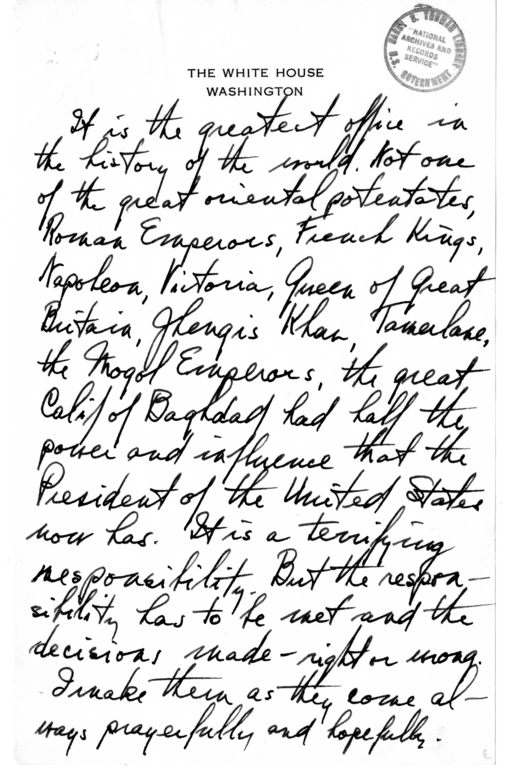 HARRY S. TRUMAN LIBRARY
"NATIONAL
ARCHIVES AND
RECORDS
SERVICE"
U.S. GOVERNMENT
THE WHITE HOUSE
WASHINGTON
It is the greatest office in
the history of the world. Not one
of the great oriental potentates,
Roman Emperors, French Kings,
Napoleon, Victoria, Queen of Great
Britain, Jhengis Khan, Tamerlane,
the Mogol Emperors, the great
Calif of Baghdad had half the
power and influence that the
President of the United States
now has. It is a terrifying
responsibility. But the respon-
sibility has to be met and the
decisions made - right or wrong.
I make them as they come al-
ways prayerfully and hopefully.